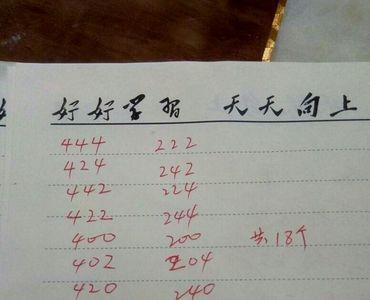 好好学习 天天向上
444 222
424 242
442 224
422 244
400 200 共18个
402 204
420 240